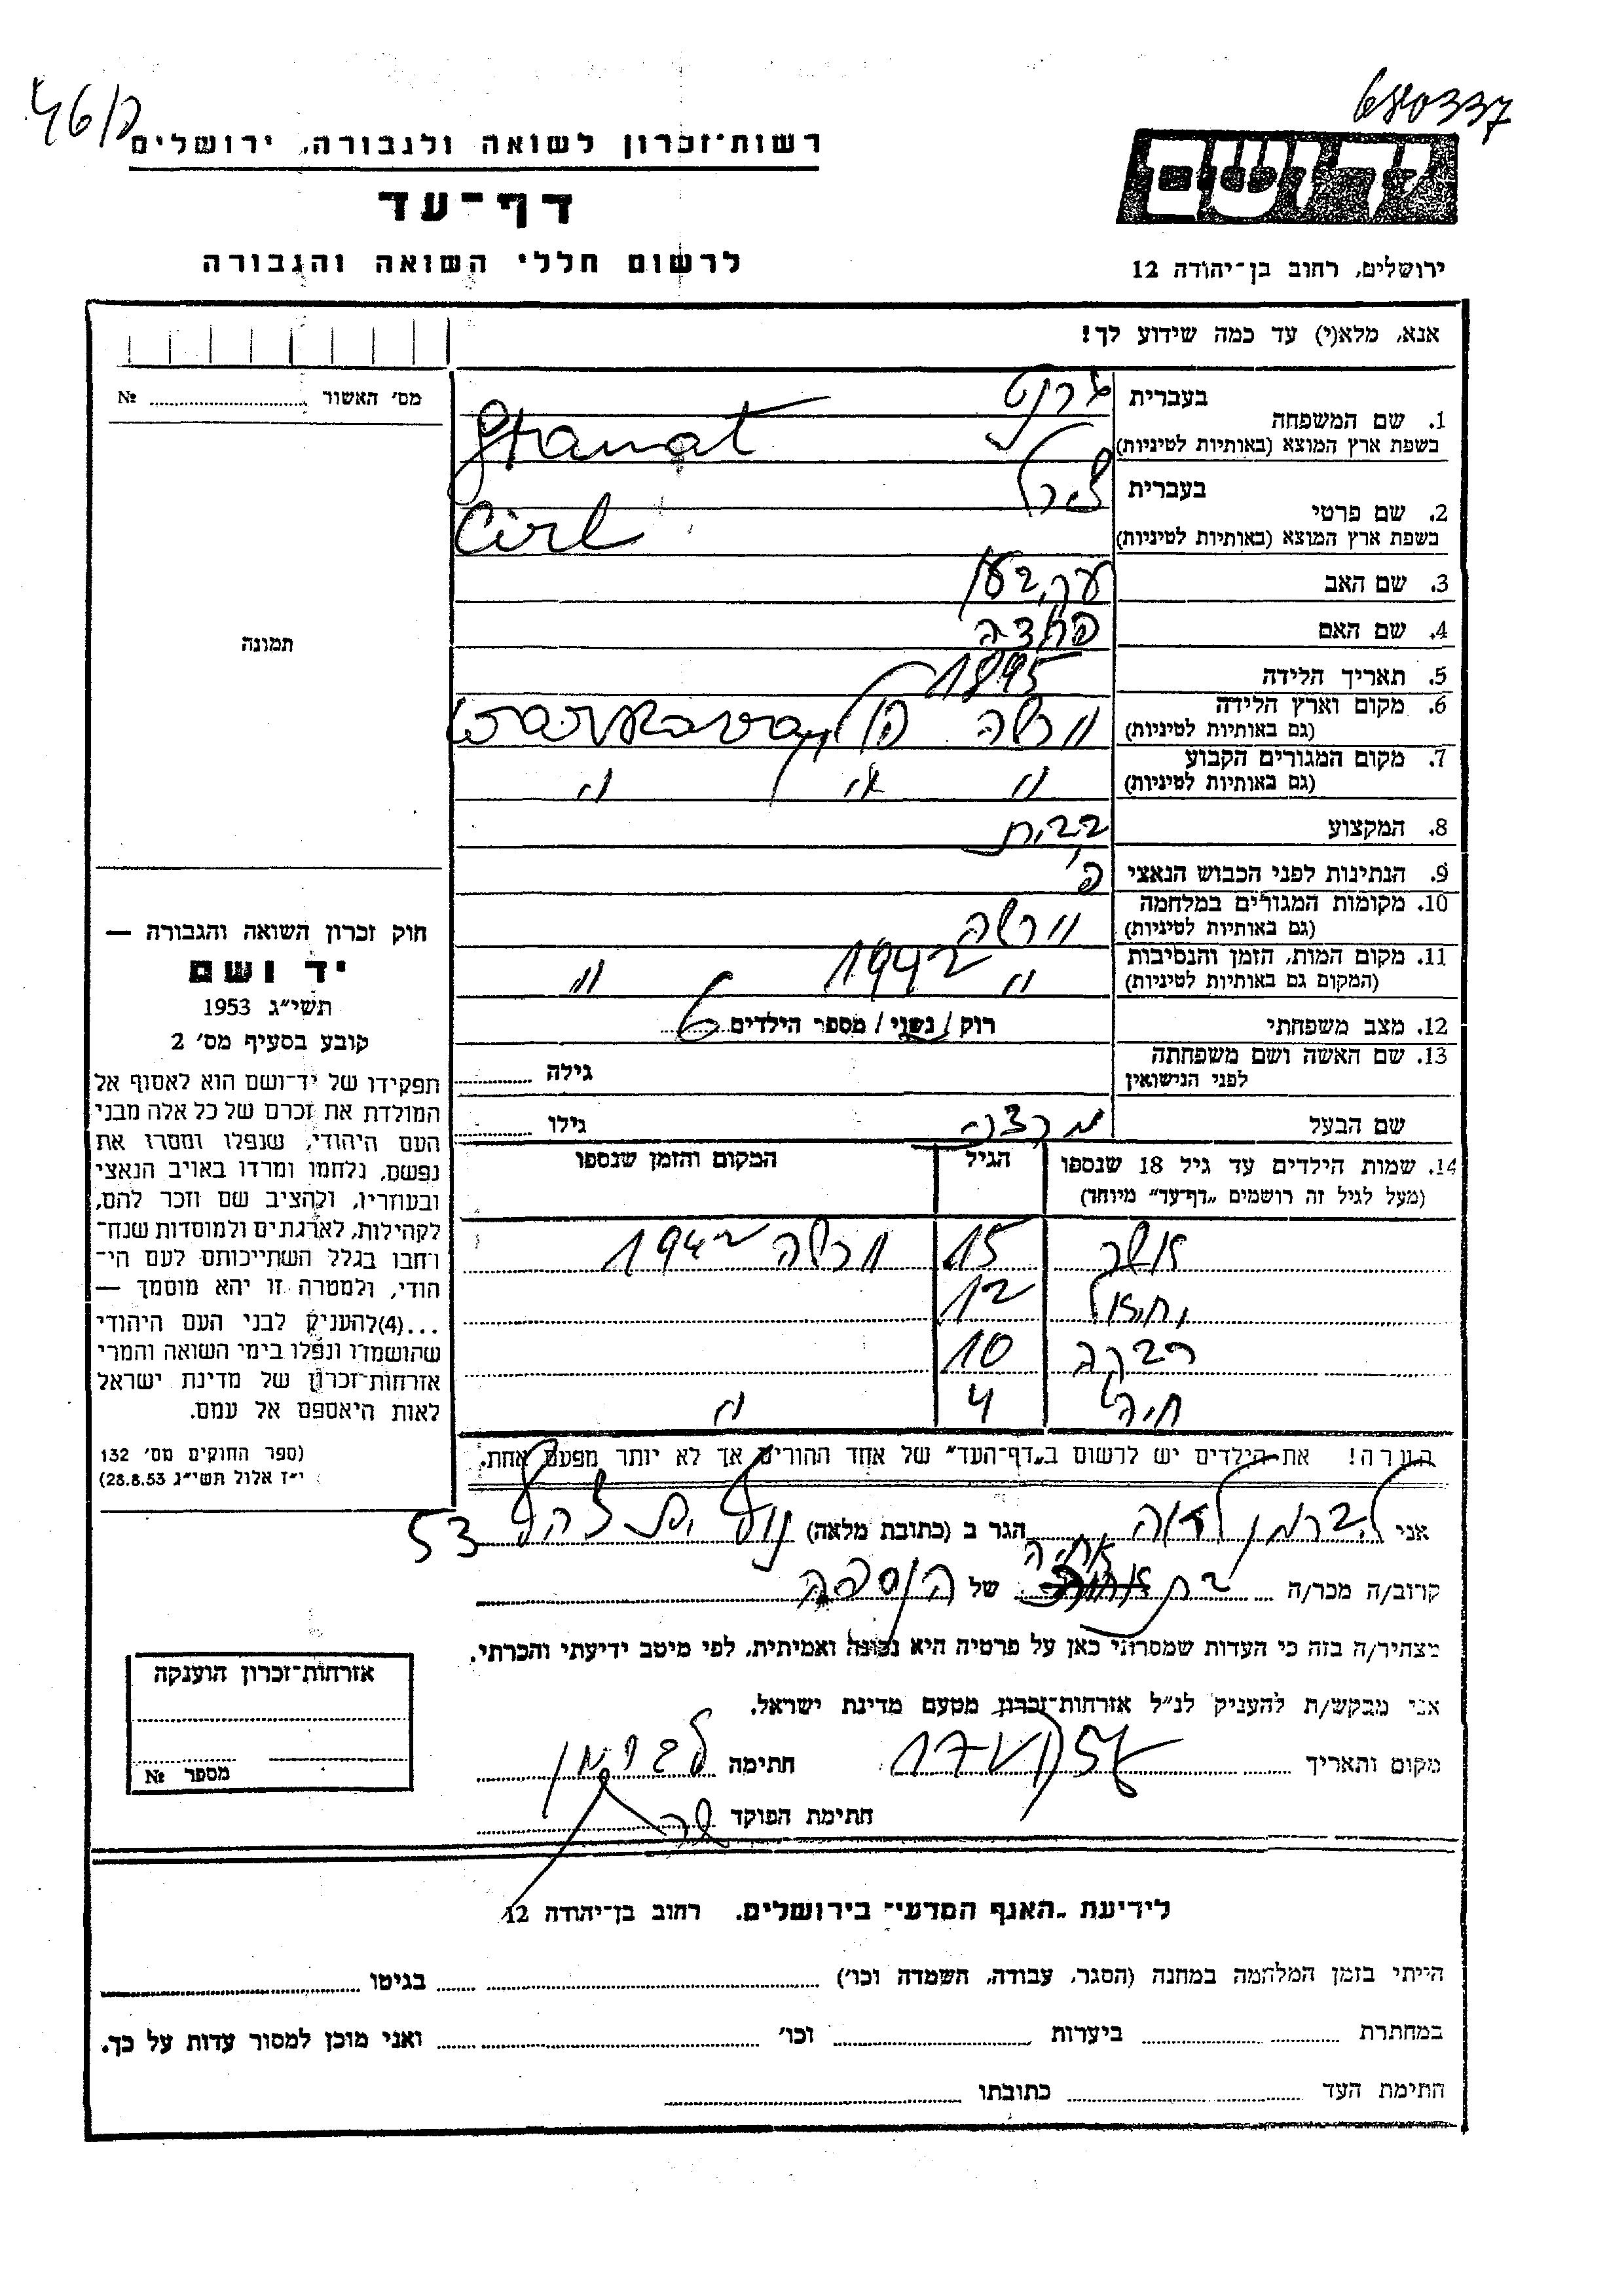 46/ק
680337
רשות־זכרון לשואה ולגבורה, ירושלים
דף־עד
לרשום חללי השואה והגבורה
ירושלים, רחוב בן־יהודה 12
אנא, מלא(י) עד כמה שידוע לך!
מס׳ האשור № 
1. שם המשפחה בעברית גרנט
בשפת ארץ המוצא (באותיות לטיניות) Granat
2. שם פרטי בעברית צירל
בשפת ארץ המוצא (באותיות לטיניות) Cirl
3. שם האב
4. שם האם
5. תאריך הלידה 1895
6. מקום וארץ הלידה ורשה פולין
(גם באותיות לטיניות)
7. מקום המגורים הקבוע " " "
(גם באותיות לטיניות)
8. המקצוע
9. הנתינות לפני הכבוש הנאצי פ'
10. מקומות המגורים במלחמה ורשה
(גם באותיות לטיניות)
11. מקום המות, הזמן והנסיבות " 1942 "
(המקום גם באותיות לטיניות)
12. מצב משפחתי רוק / נשוי / מספר הילדים 6
13. שם האשה ושם משפחתה לפני הנישואין גילה
שם הבעל גילו
14. שמות הילדים עד גיל 18 שנספו הגיל המקום והזמן שנספו
(מעל לגיל זה רושמים „דף־עד” מיוחד)
אשר 15 ורשה 1942
יחיאל 12
רבקה 10
חיה 4 "
הערה! את הילדים יש לרשום ב„דף־העד” של אחד ההורים אך לא יותר מפעם אחת.
תמונה
חוק זכרון השואה והגבורה —
יד ושם
תשי״ג 1953
קובע בסעיף מס׳ 2
תפקידו של יד־ושם הוא לאסוף אל
המולדת את זכרם של כל אלה מבני
העם היהודי, שנפלו ומסרו את
נפשם, נלחמו ומרדו באויב הנאצי
ובעוזריו, ולהציב שם וזכר להם,
לקהילות, לארגונים ולמוסדות שנח־
רחבו בגלל השתייכותם לעם הי־
הודי, ולמטרה זו יהא מוסמך —
...(4) להעניק לבני העם היהודי
שהושמדו ונפלו בימי השואה והמרי
אזרחות־זכרון של מדינת ישראל
לאות היאספם אל עמם.
(ספר החוקים מס׳ 132
י״ז אלול תשי״ג 28.8.53)
אני ליברמן לאה הגר ב (כתובת מלאה) 53
קרוב/ה מכר/ה בת אחיה של הנספה
מצהיר/ה בזה כי העדות שמסרתי כאן על פרטיה היא נכונה ואמיתית, לפי מיטב ידיעתי והכרתי.
אני מבקש/ת להעניק לנ״ל אזרחות־זכרון מטעם מדינת ישראל.
מקום ותאריך חתימה ליברמן
חתימת הפוקד
אזרחות־זכרון הוענקה
מספר №
לידיעת „האגף המדעי” בירושלים, רחוב בן־יהודה 12
הייתי בזמן המלחמה במחנה (הסגר, עבודה, השמדה וכו׳) בגיטו
במחתרת ביערות וכו׳ ואני מוכן למסור עדות על כך.
חתימת העד כתובתו